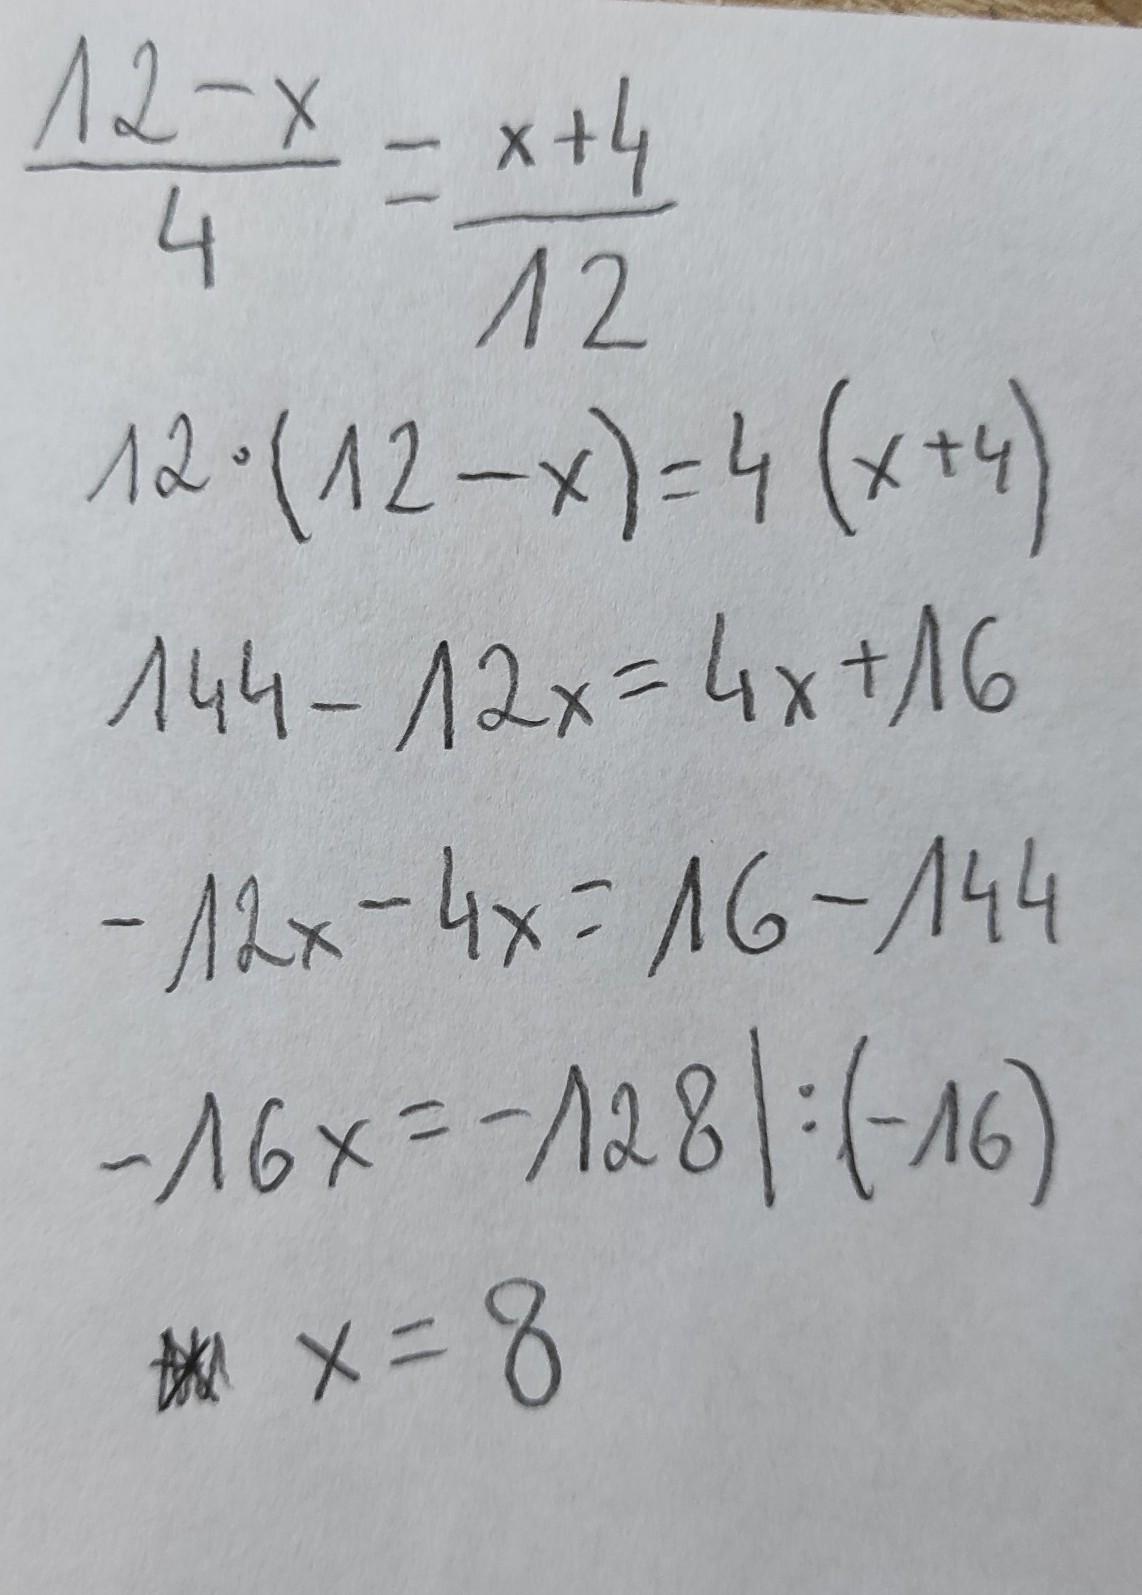 12-x/4 = x+4/12
12·(12-x)=4(x+4)
144-12x=4x+16
-12x-4x=16-144
-16x=-128|:(-16)
x=8